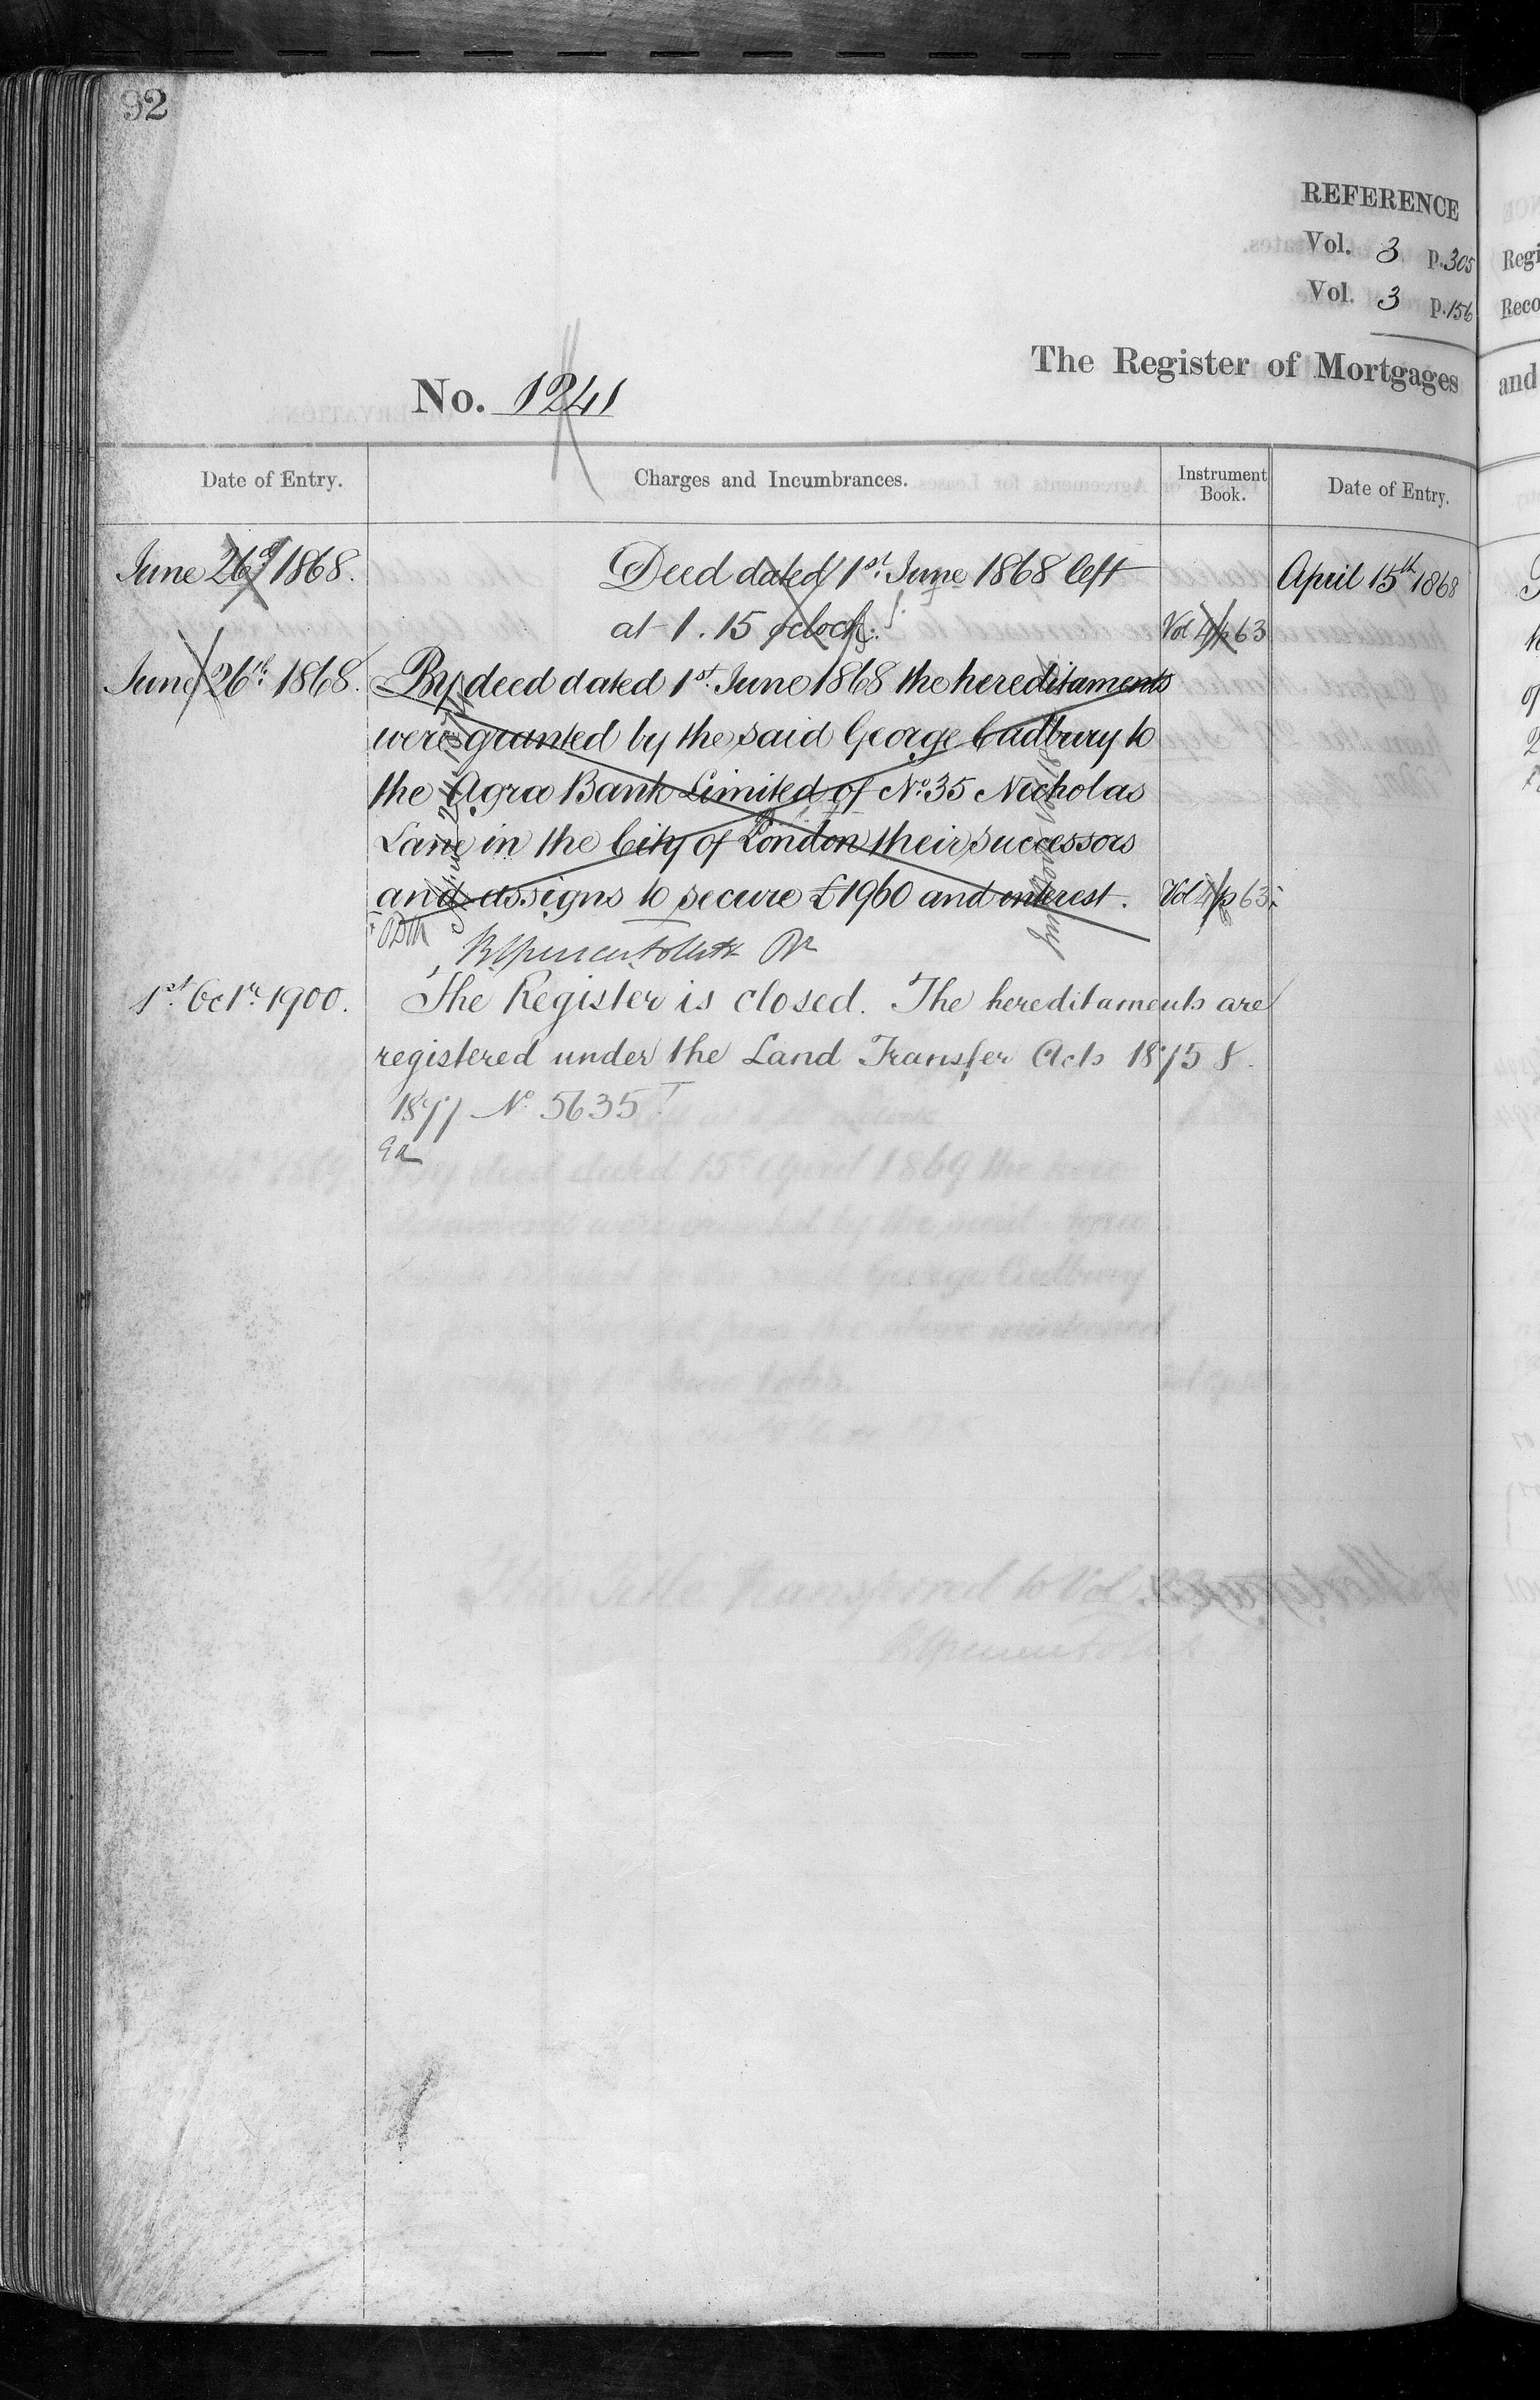 92
REFERENCE
Vol. 3 p. 305
Vol. 3 p. 156
The Register of Mortgages
No. 1241
Date of Entry. Charges and Incumbrances. Instrument Book. Date of Entry.
June 26th 1868. Deed dated 1st. June 1868 left April 15th 1868
at 1.15 oclock. Vol 4 p 63
June 26th. 1868. By deed dated 1st. June 1868 the hereditaments
were granted by the said George Cadbury to
the Agra Bank Limited of No. 35 Nicholas
Lane in the City of London their successors
and assigns to secure £1960 and interest. Vol 4 p 63
1st. Octr. 1900. The Register is closed. The hereditaments are
registered under the Land Transfer Acts 1875 &
1897 No. 5635